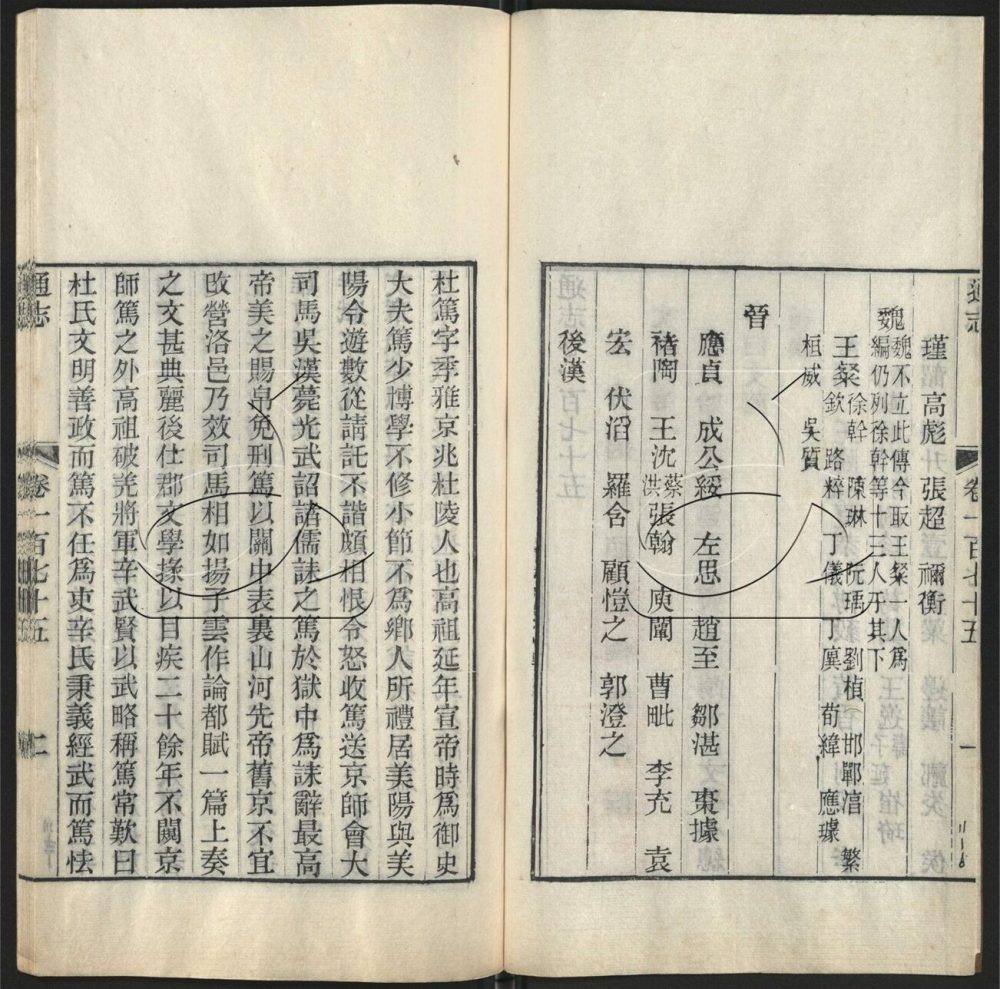 通志
卷一百七十五
一
瑾 高彪 張超 禰衡
魏
魏不立此傳今取王粲一人爲
編仍列徐幹等十三人于其下
王粲 徐幹 陳琳 阮瑀 劉楨 邯鄲淳 繁
欽 路粹 丁儀 丁廙 荀緯 應璩
桓威 吳質
晉
應貞 成公綏 左思 趙至 鄒湛 棗據
褚陶 王沈 蔡洪 張翰 庾闡 曹毗 李充 袁
宏 伏滔 羅含 顧愷之 郭澄之
後漢
杜篤字季雅京兆杜陵人也高祖延年宣帝時爲御史
大夫篤少博學不修小節不爲鄉人所禮居美陽與美
陽令遊數從請託不諧頗相恨令怒收篤送京師會大
司馬吳漢薨光武詔諸儒誄之篤於獄中爲誄辭最高
帝美之賜帛免刑篤以關中表裏山河先帝舊京不宜
改營洛邑乃效司馬相如揚子雲作論都賦一篇上奏
之文甚典麗後仕郡文學掾以目疾二十餘年不闚京
師篤之外高祖破羌將軍辛武賢以武略稱篤常歎曰
杜氏文明善政而篤不任爲吏辛氏秉義經武而篤怯
通志
卷一百七十五
二